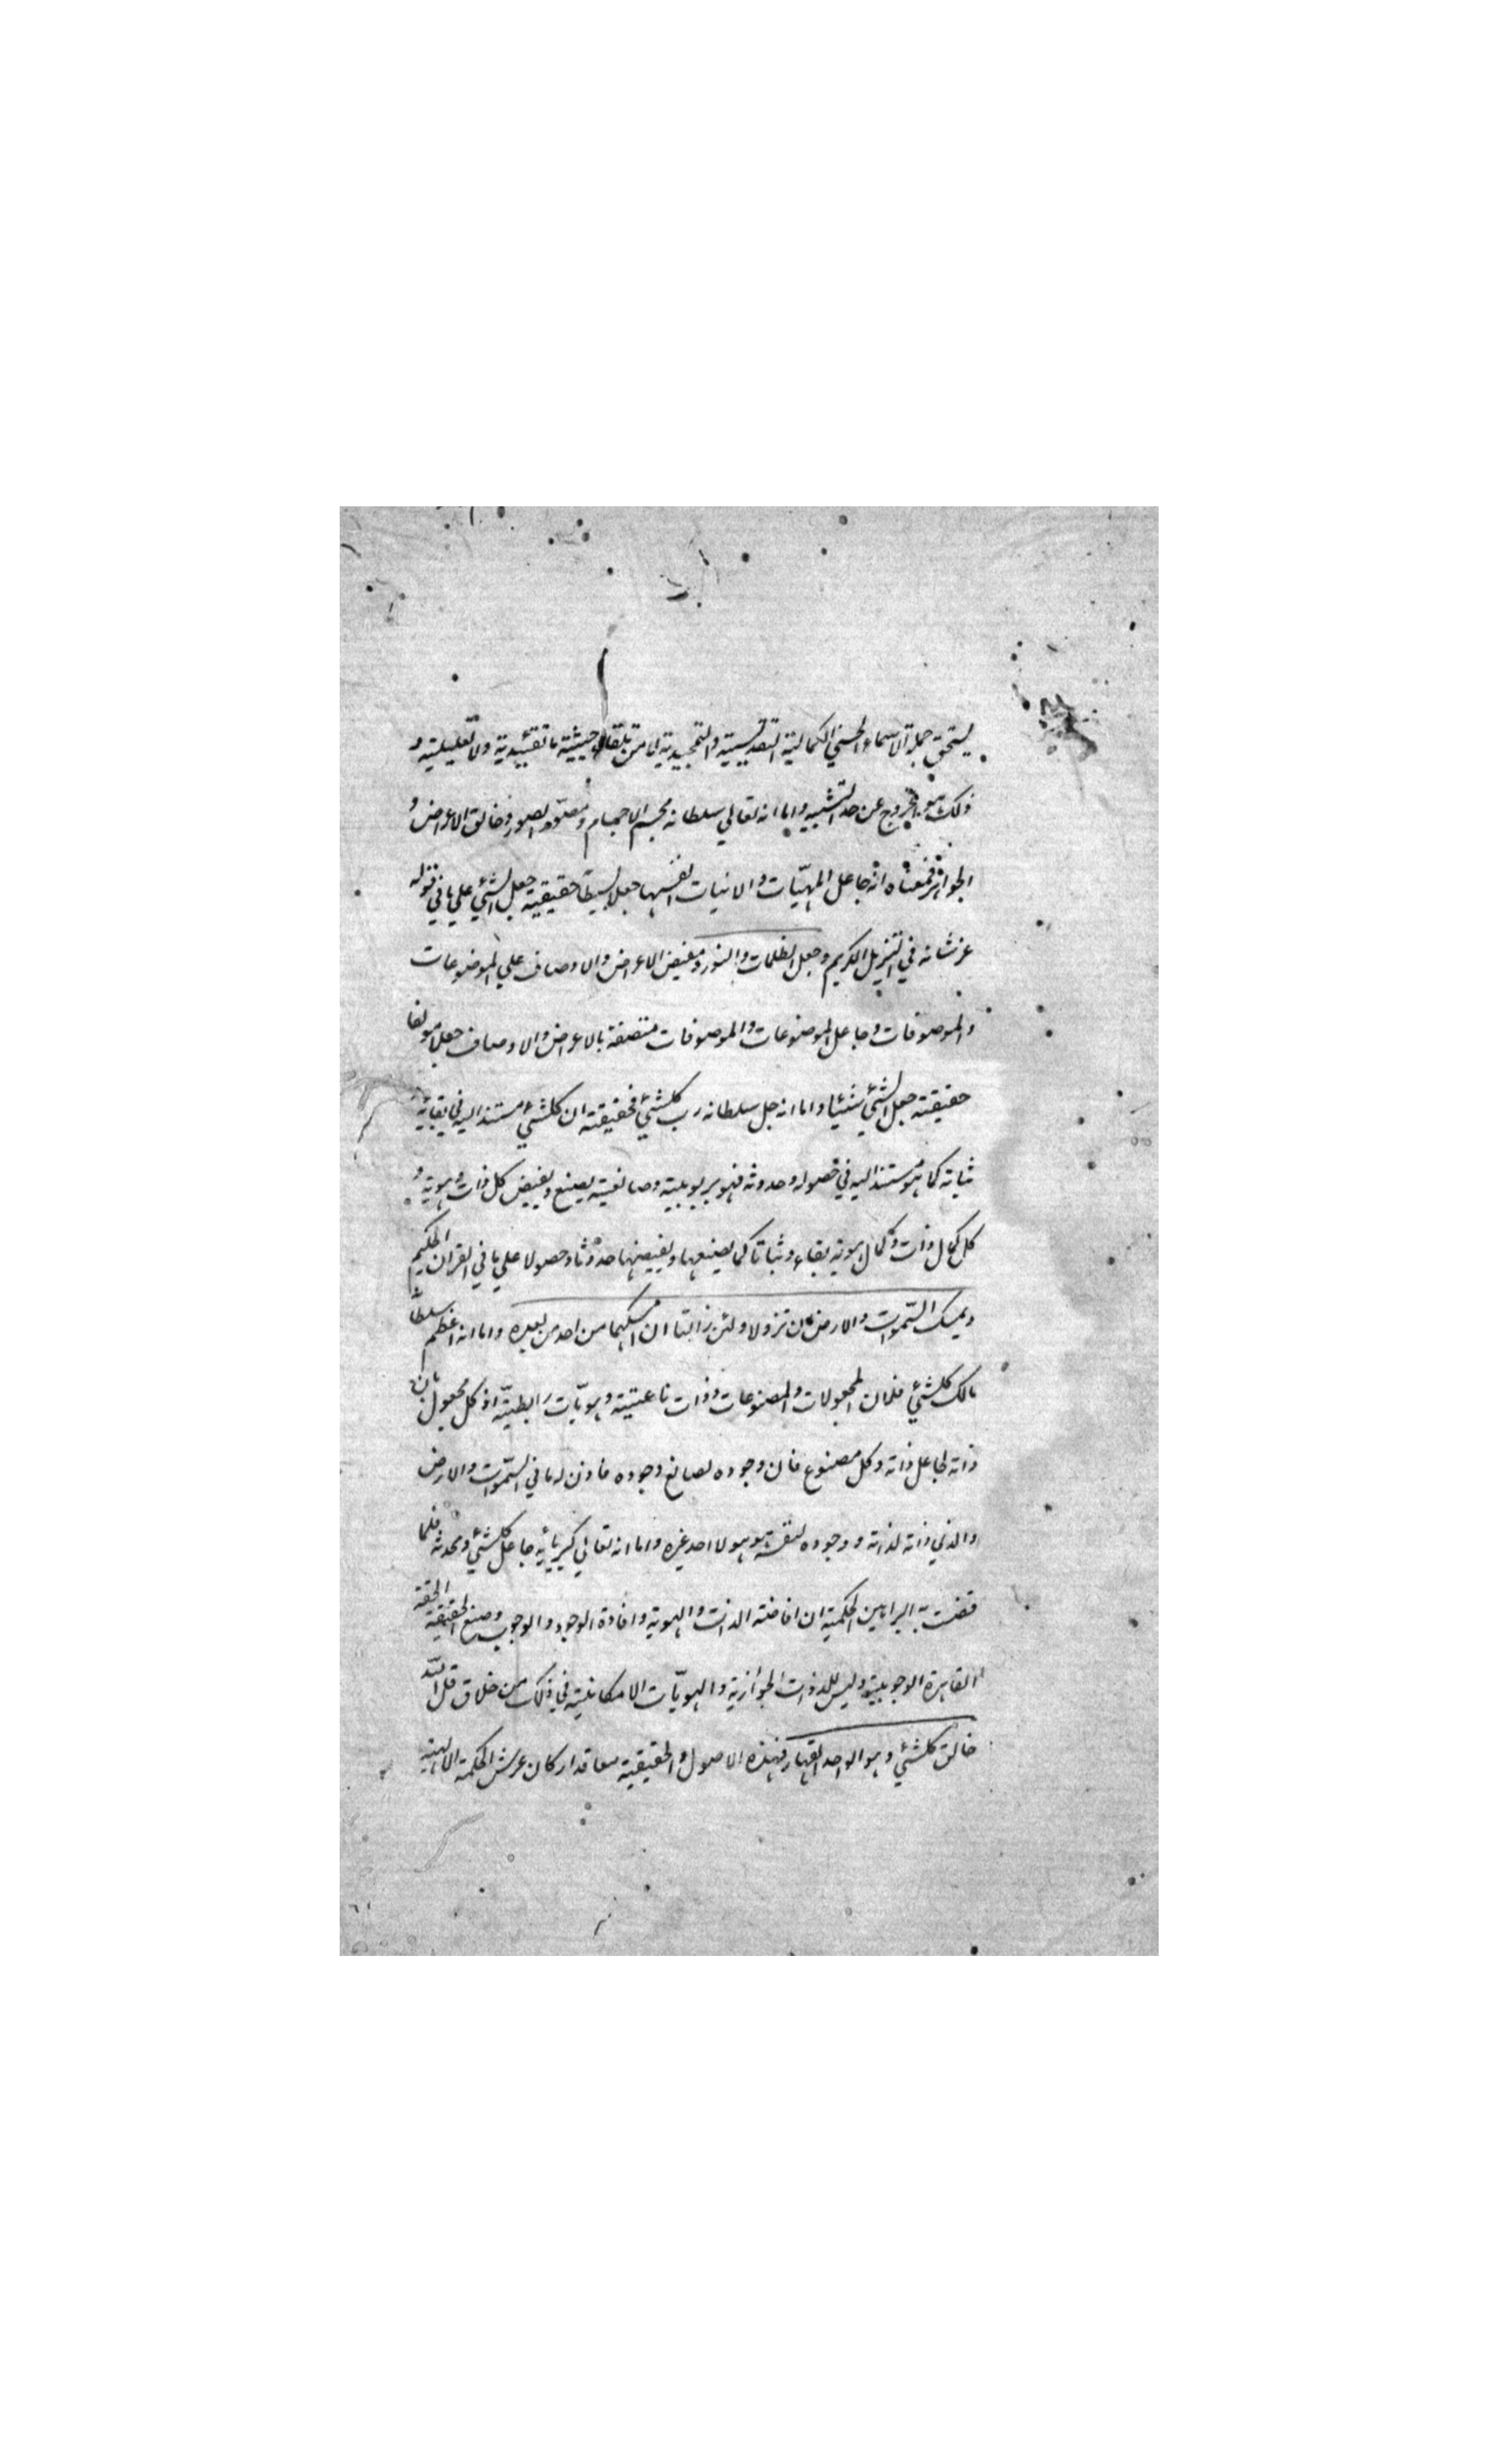 يستحق جملة الاسماء الحسني الكمالية التقديسية والتمجيدية لا من تلقاء حيثية ما تقييدية ولا تعليلية و
ذلك هو الخروج عن حد التشبيه واما انه تعالي سلطانه مجسم الاجسام ومصور الصور وخالق الاعراض و
الجواهر فمعناه انه جاعل المهيّات والانيات انفسها جعلا بسيطا حقيقية جعل الشئ علي ما في قوله
عز شانه في التنزيل الكريم وجعل الظلمات والنور ومفيض الاعراض والاوصاف علي الموضوعات
والموصوفات وجاعل الموضوعات والموصوفات متصفة بالاعراض والاوصاف جعلا مولفا
حقيقته جعل الشئ شيئا واما انه جل سلطانه رب كلشئ فحقيقته ان كلشئ مستند اليه في بقائه و
ثباته كما هو مستند اليه في حصوله وحدوثه فهو بربوبيته وصانعيته يصنع ويفيض كل ذات وهوية و
كل كمال ذات وكمال هوية بقاء وثباتا كما يصنعها ويفيضها حدوثا وحصولا علي ما في القران الحكيم
ويمسك السّموات والارض ان تزولا ولئن زالتا ان امسكهما من احد من بعده واما انه اعظم سلطانه
مالك كلشئ فلان المجعولات والمصنوعات ذوات ناعتية وهويّات رابطيّة اذ كل مجعول فان
ذاته لجاعل ذاته وكل مصنوع فان وجوده لصانع وجوده فاذن له ما في السّموات والارض
والذي ذاته لذاته ووجوده لنفسه هو هو لا احد غيره واما انه تعالي كبريائه جاعل كلشئ ومحدثه فلما
قضت به البراهين الحكمية ان افاضته الذات والهوية وافادة الوجود والوجوب وصنع الحقيقية الحقة
القاهرة الوجوبية وليس للذوات الجوازية والهويّات الامكانية في ذلك من خلاق قل اللّه
خالق كلشئ وهو الواحد القهار فهذه الاصول الحقيقية معاقد اركان عرش الحكمة الالهية